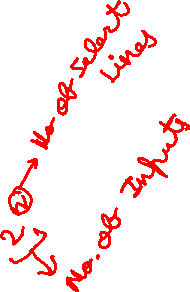 2ⁿ
No. of Select
Lines
No. of Inputs